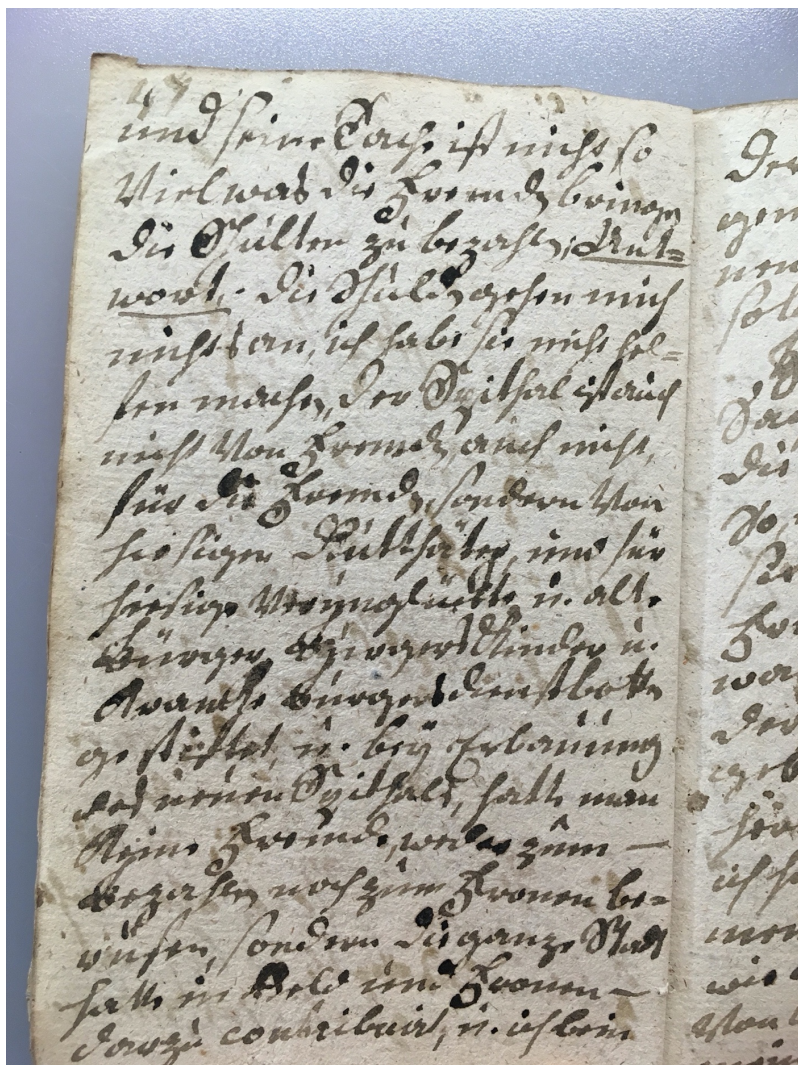 47
und seine Sach ist nicht so
Viel was die Fremde bringen
die Schulten zu bezahlen; Ant=
wort, die Schulden gehen mich
nichts an, ich habe sie nicht hel=
fen machen, der Spithal ist auch
nicht Von Fremden, auch nicht,
für die Fremde, sondern Von
hiesigen Gutthäter, und für
hiesige Verunglückte u. alte
bürger, bürgers Kinder u.
Krancke bürgers dienstbotten
gestifftet, u. beÿ Erbauung
des neuen Spithals, hatte man
Keine Fremde, weder zum —
bezahlen noch zum Fronen be=
rufen, sondern die ganze Statt
hatte in Geld und Fronen —
darzu contribuirt, u. ich bein
Der
gen
nen
sol
Sac
die
so
Fre
wa
der
geb
hör
ich h
men
wie
Von